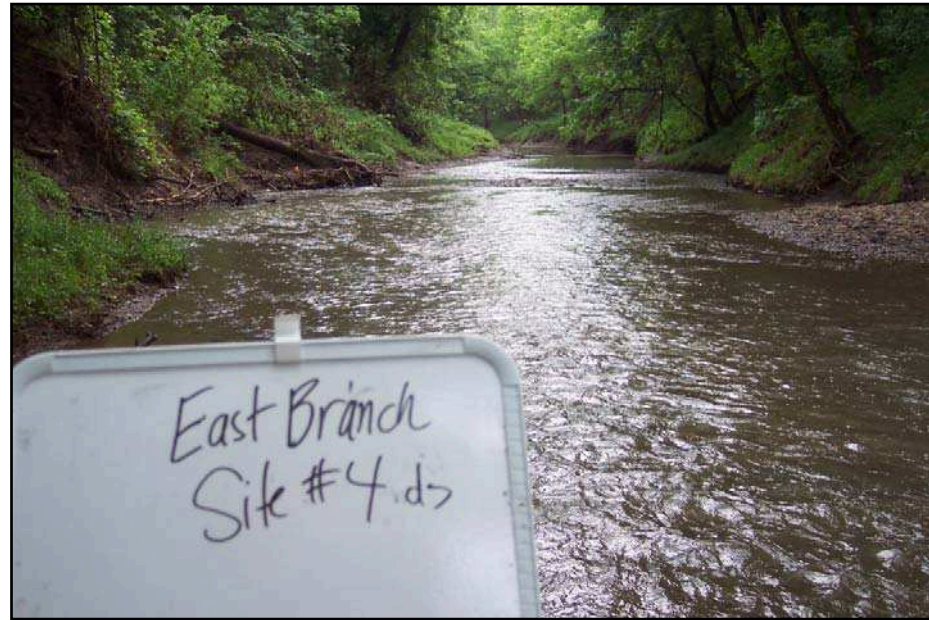 East Branch
Site #4.ds